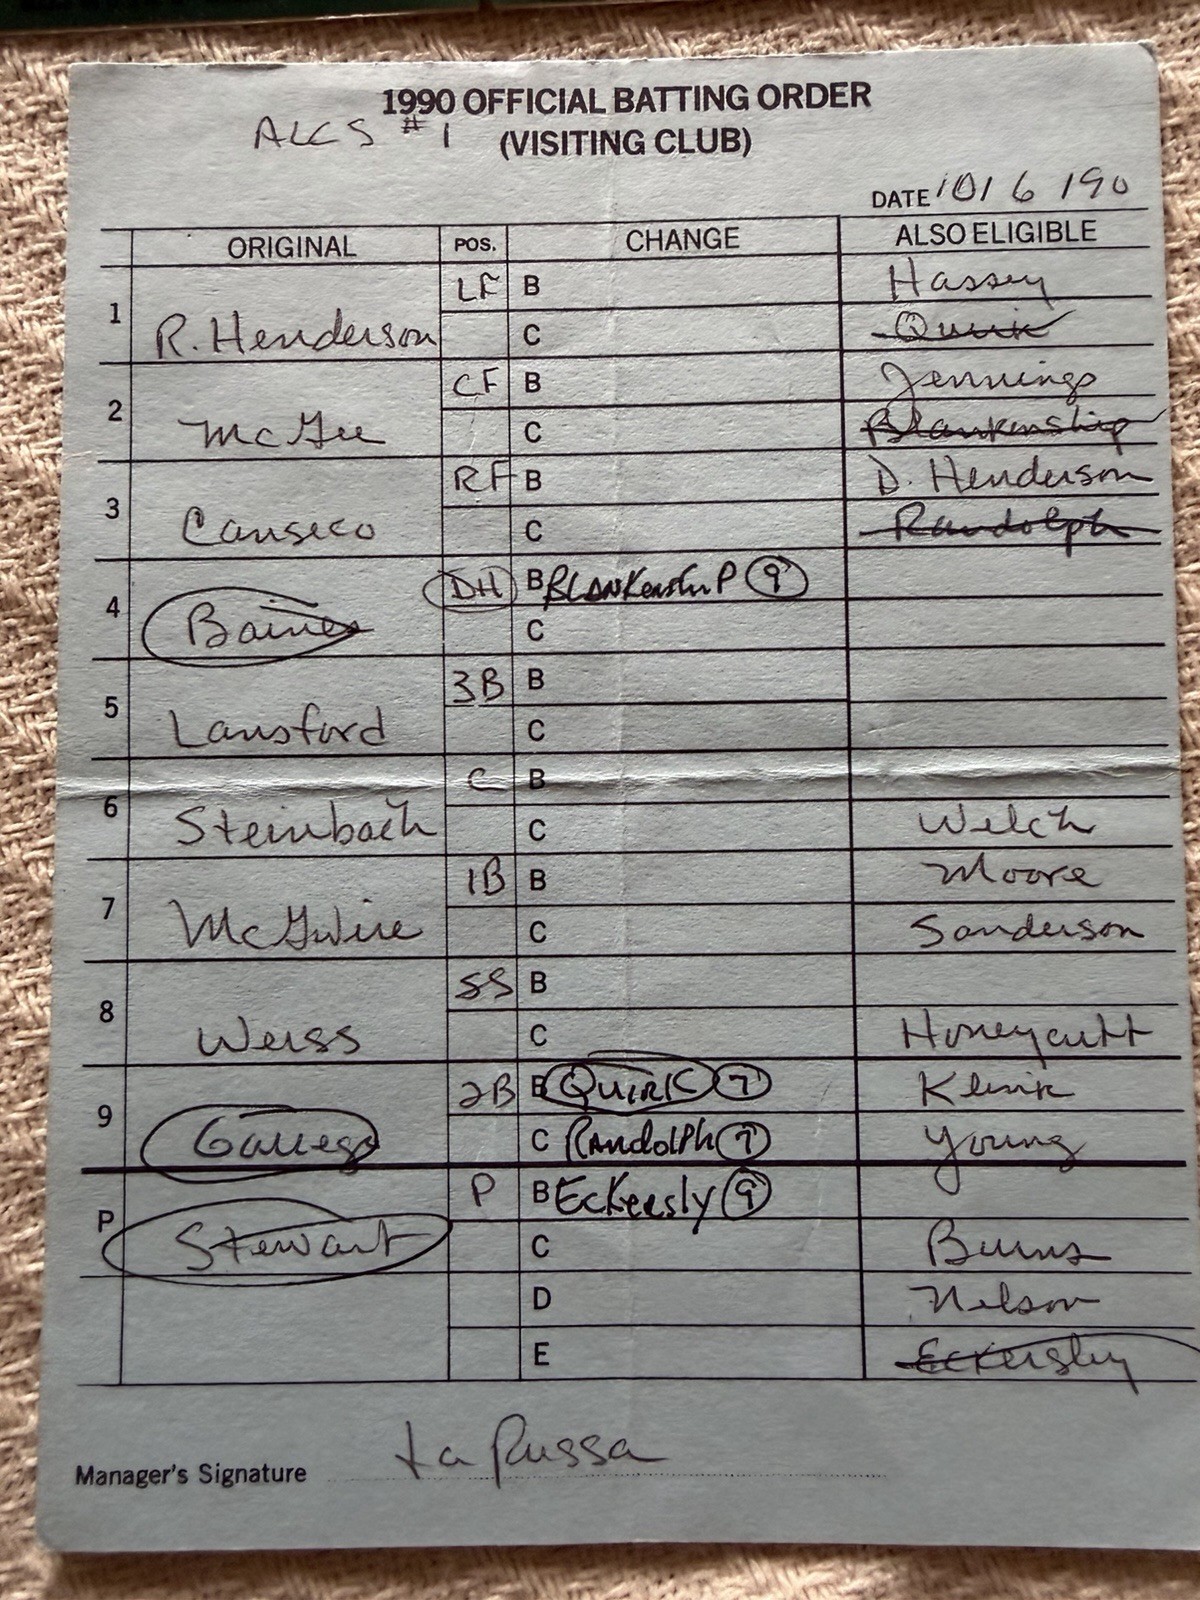 1990 OFFICIAL BATTING ORDER
ALCS #1 (VISITING CLUB)
DATE 10/6/90
ORIGINAL POS. CHANGE ALSO ELIGIBLE
1 R. Henderson LF B Hassey
C Quirk
2 McGee CF B Jennings
C Blankenship
3 Canseco RF B D. Henderson
C Randolph
4 Baines DH B BLANKenshiP 9
C
5 Lansford 3B B
C
6 Steinbach C B
C Welch
7 McGwire 1B B Moore
C Sanderson
8 Weiss SS B
C Honeycutt
9 Gallego 2B B QUIRK 7 Klink
C RAndolPh 7 Young
P Stewart P B EcKersly 9
C Burns
D Nelson
E Eckersley
Manager's Signature La Russa